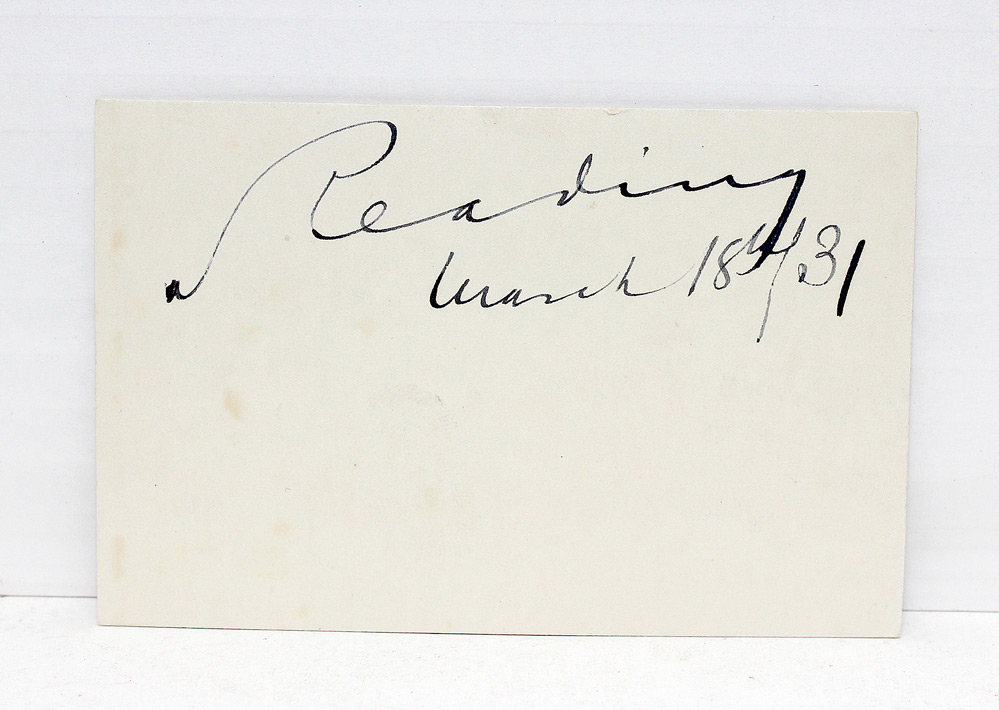 Reading
March 18th/31